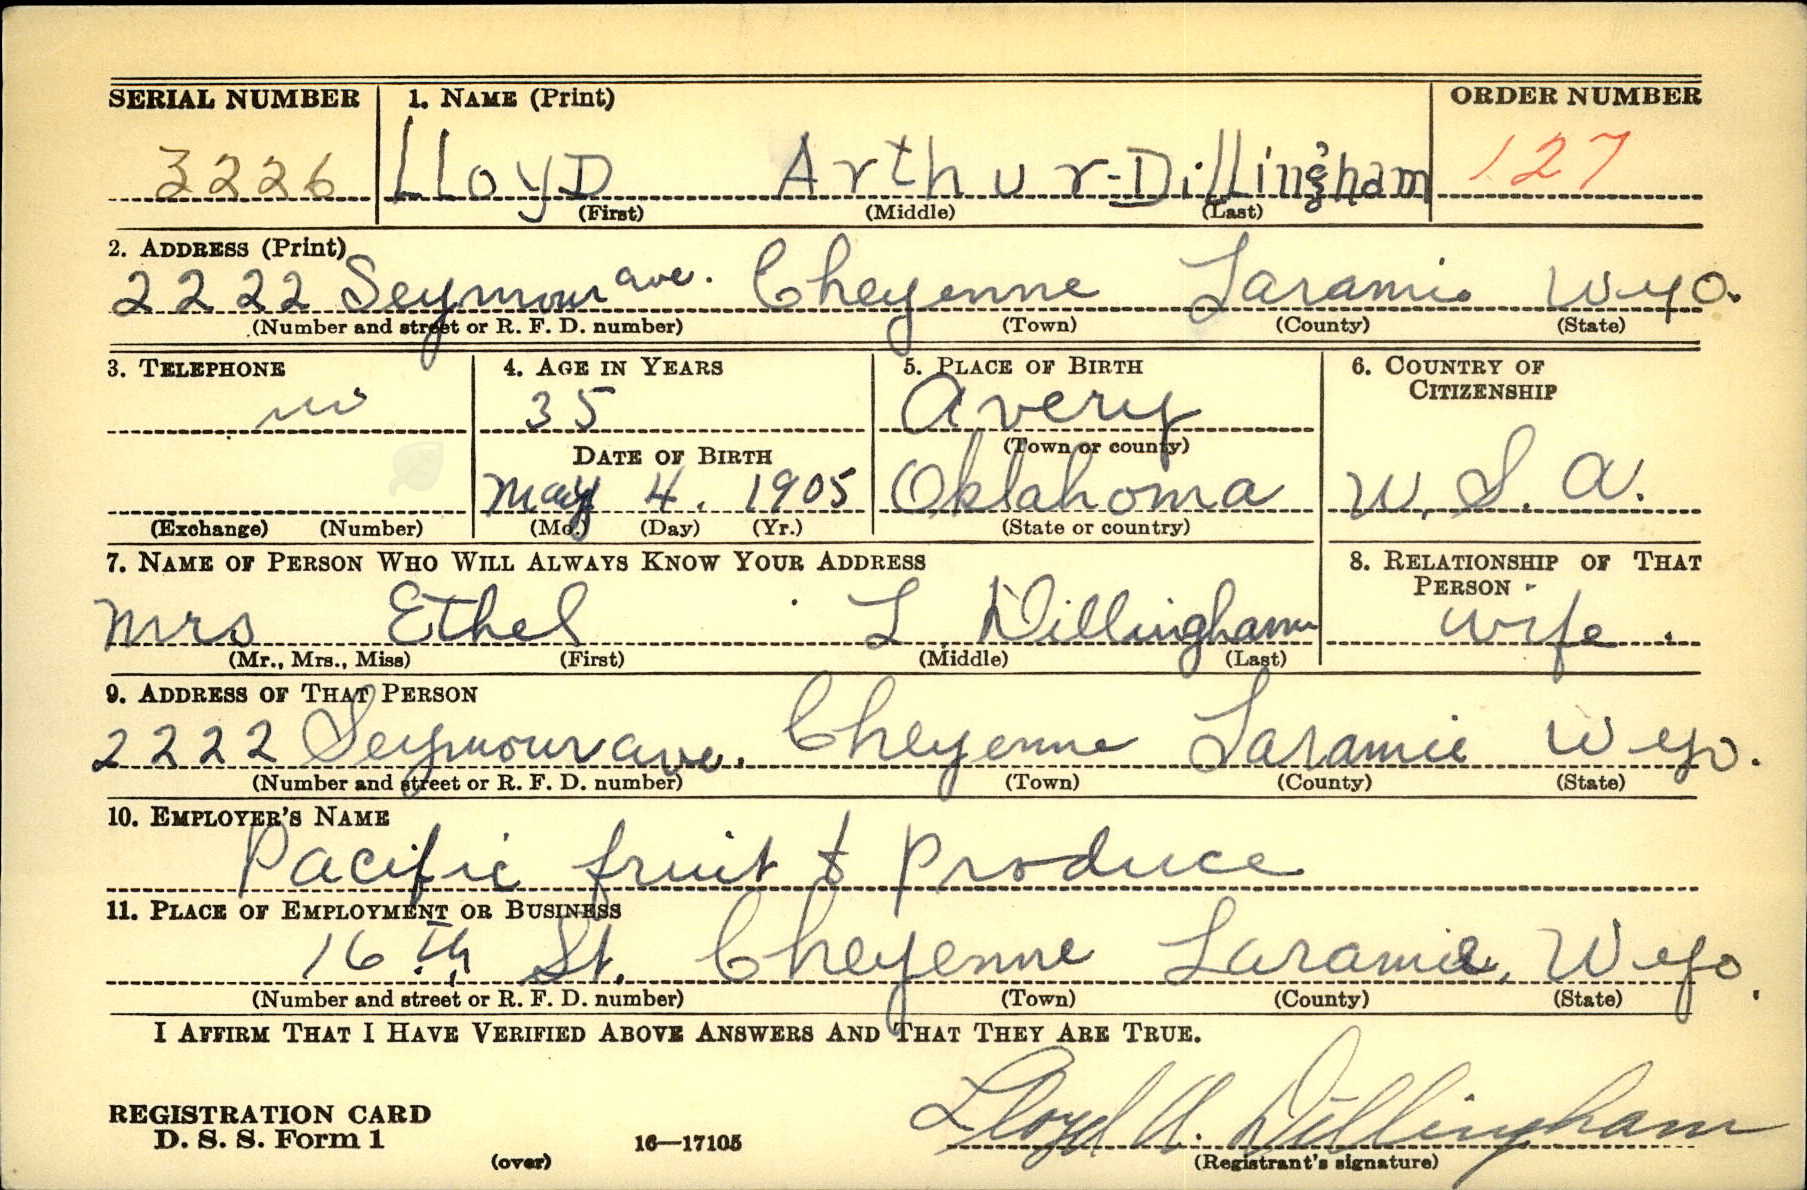 SERIAL NUMBER 1. NAME (Print) ORDER NUMBER
3226 LLoyD Arthur-DiLLingham 127
(First) (Middle) (Last)
2. ADDRESS (Print)
2222 Seymour ave. Cheyenne Laramie Wyo.
(Number and street or R. F. D. number) (Town) (County) (State)
3. TELEPHONE 4. AGE IN YEARS 5. PLACE OF BIRTH 6. COUNTRY OF CITIZENSHIP
35 Avery
(Town or county)
DATE OF BIRTH
May 4. 1905 Oklahoma U. S. A.
(Exchange) (Number) (Mo.) (Day) (Yr.) (State or country)
7. NAME OF PERSON WHO WILL ALWAYS KNOW YOUR ADDRESS 8. RELATIONSHIP OF THAT PERSON
Mrs Ethel L Dillingham wife.
(Mr., Mrs., Miss) (First) (Middle) (Last)
9. ADDRESS OF THAT PERSON
2222 Seymour ave. Cheyenne Laramie Wyo.
(Number and street or R. F. D. number) (Town) (County) (State)
10. EMPLOYER'S NAME
Pacific fruit & Produce
11. PLACE OF EMPLOYMENT OR BUSINESS
16th St. Cheyenne Laramie, Wyo.
(Number and street or R. F. D. number) (Town) (County) (State)
I AFFIRM THAT I HAVE VERIFIED ABOVE ANSWERS AND THAT THEY ARE TRUE.
REGISTRATION CARD
D. S. S. Form 1 16—17105 Lloyd A. Dillingham
(over) (Registrant's signature)